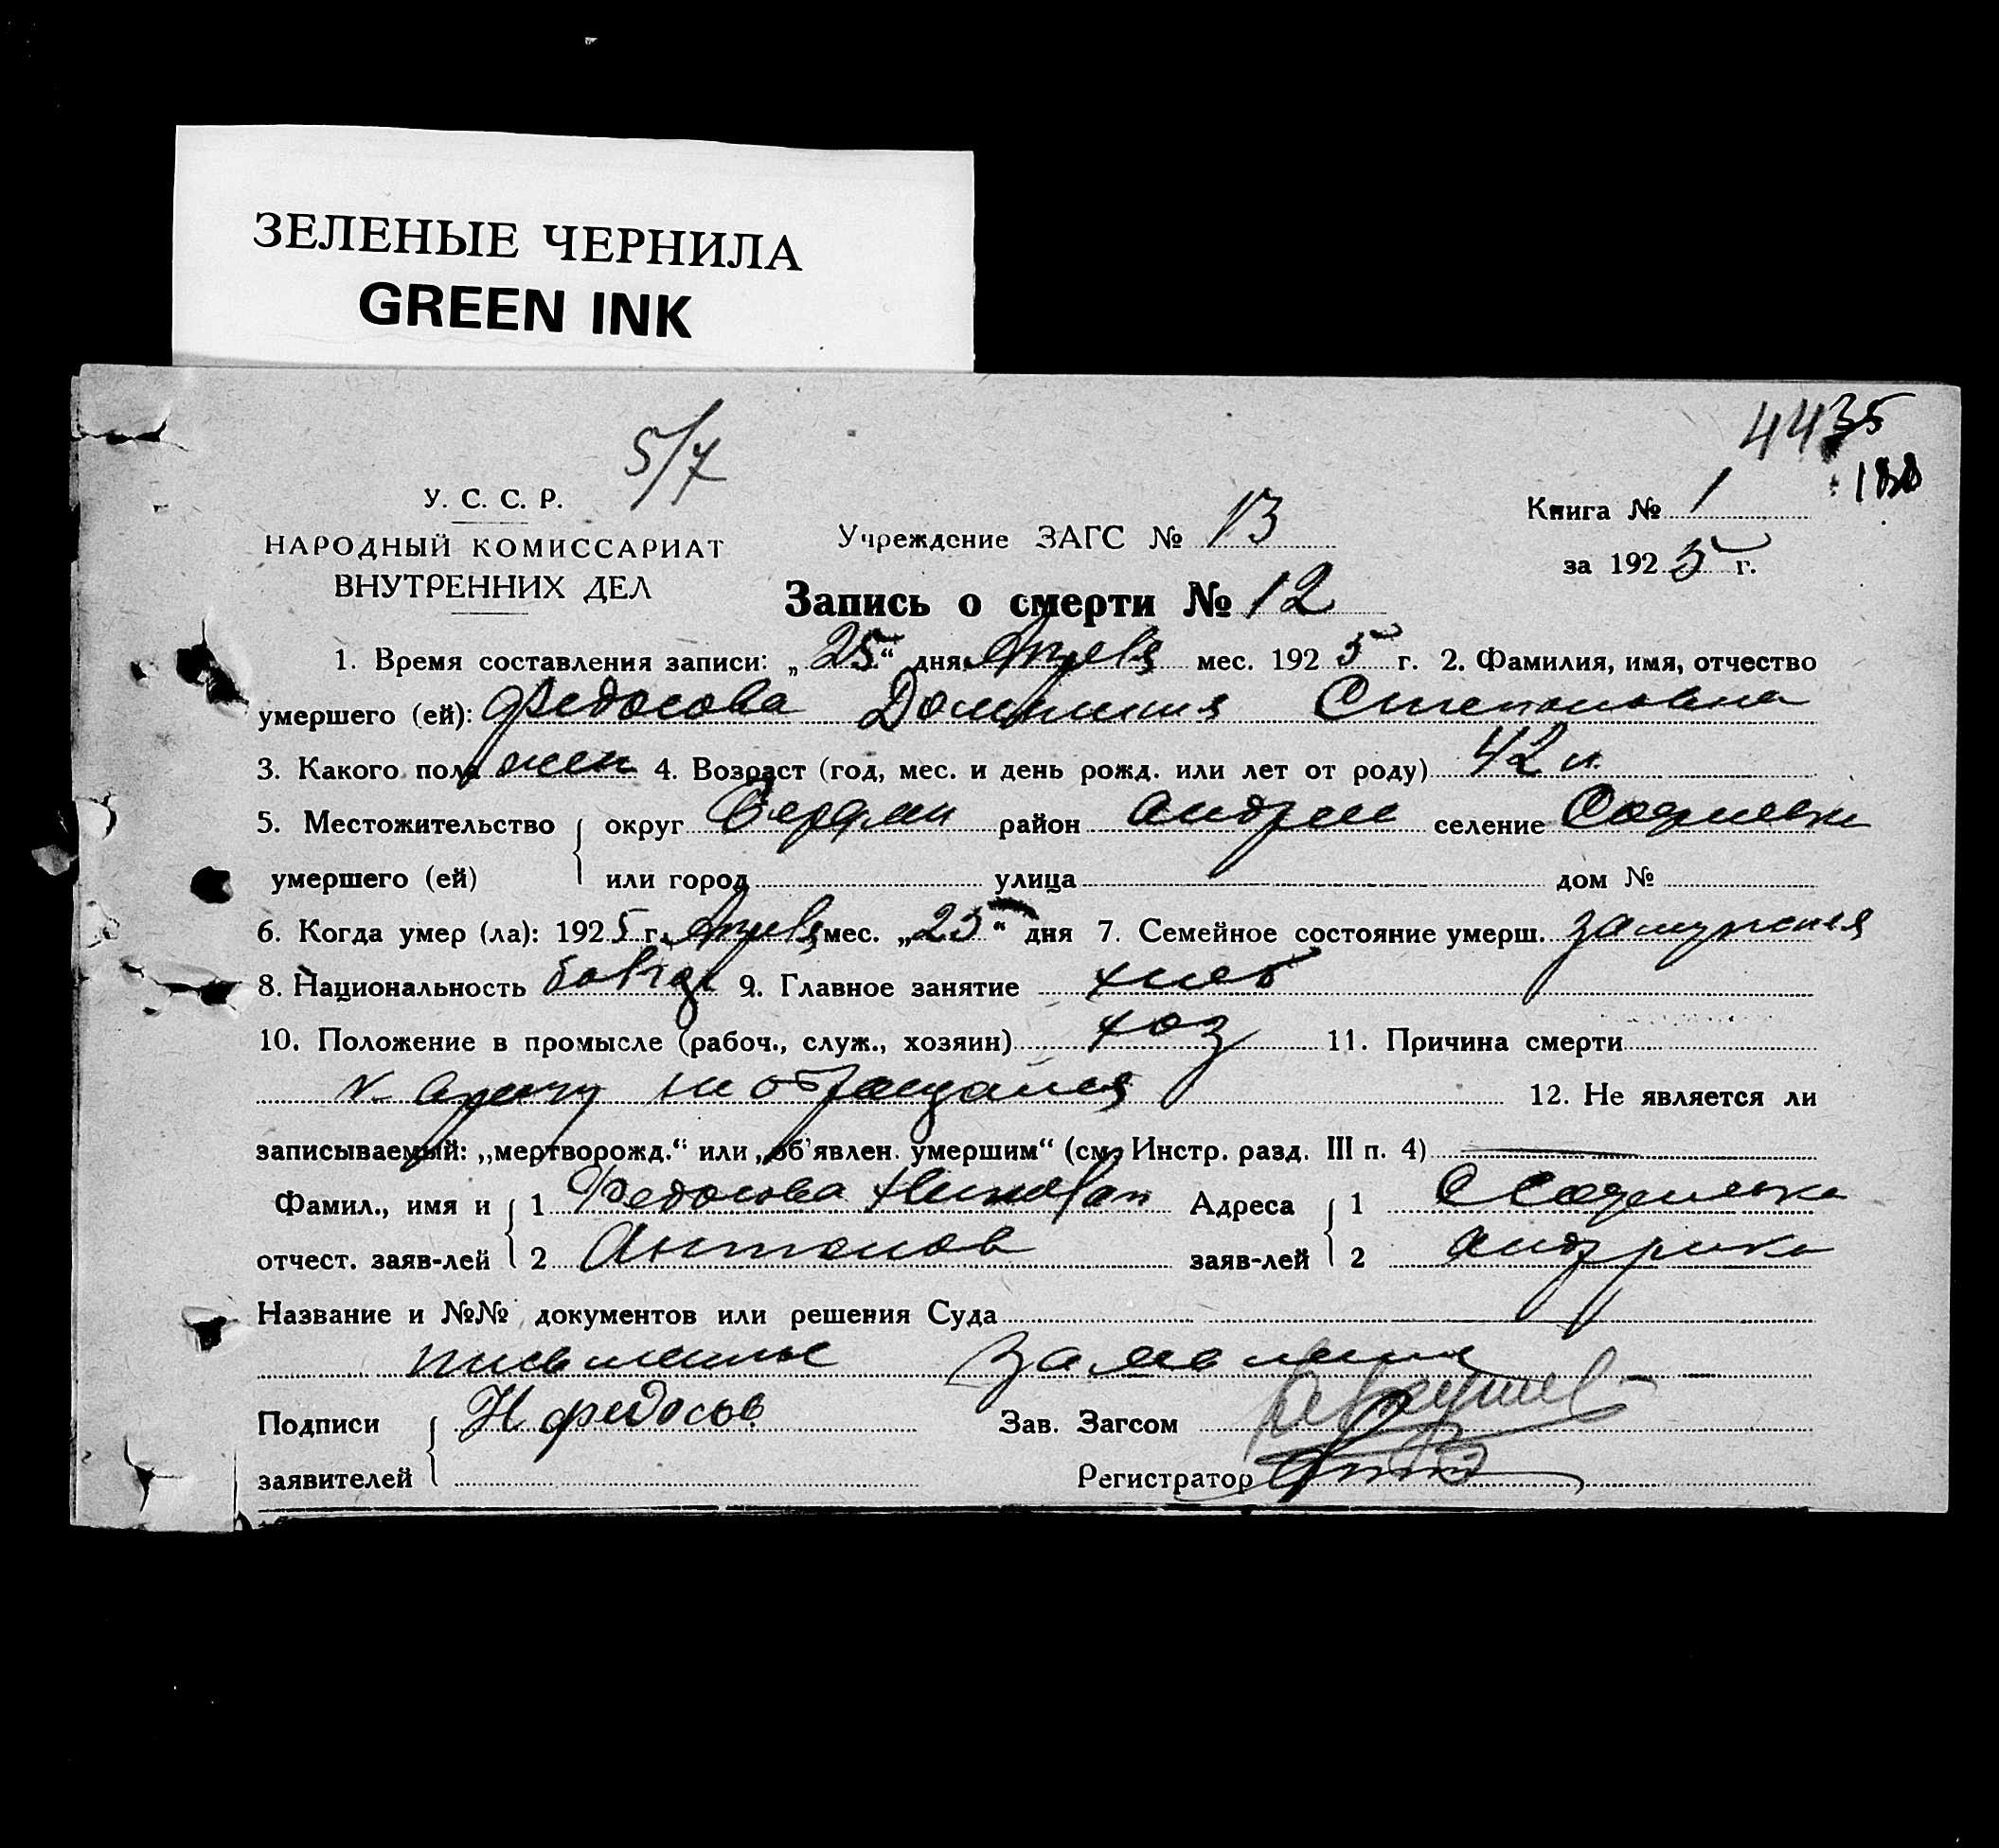 ЗЕЛЕНЫЕ ЧЕРНИЛА
GREEN INK
4435
188
5/7
У. С. С. Р.
НАРОДНЫЙ КОМИССАРИАТ
ВНУТРЕННИХ ДЕЛ
Учреждение ЗАГС № 13
Книга № 1
за 1925 г.
Запись о смерти № 12
1. Время составления записи: „25“ дня Апреля мес. 1925 г. 2. Фамилия, имя, отчество
умершего (ей): Федосова Степановна
3. Какого пола жен 4. Возраст (год, мес. и день рожд. или лет от роду) 42 л.
5. Местожительство округ район Андрее селение
умершего (ей) или город улица дом №
6. Когда умер (ла): 1925 г. Апреля мес. „23“ дня 7. Семейное состояние умерш. замужняя
8. Национальность 9. Главное занятие хлеб
10. Положение в промысле (рабоч., служ., хозяин) хоз 11. Причина смерти
к врачу не обращался 12. Не является ли
записываемый: „мертворожд.“ или „об’явлен. умершим“ (см. Инстр. разд. III п. 4)
Фамил., имя и 1 Федосова Адреса 1
отчест. заяв-лей 2 Антонов заяв-лей 2
Название и №№ документов или решения Суда
письменные заявления
Подписи Н Федосов Зав. Загсом
заявителей Регистратор